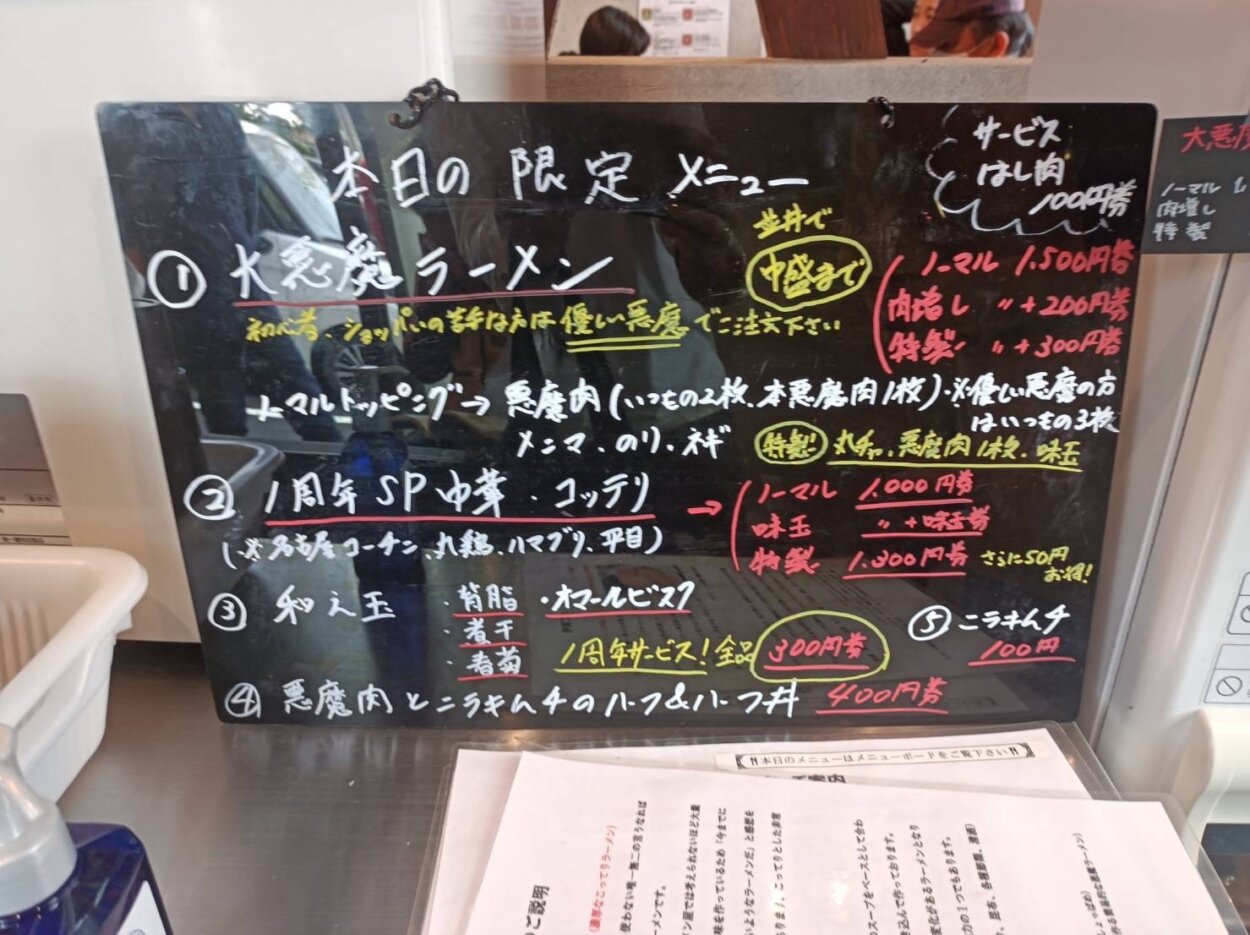 本日の限定メニュー
サービス
はし肉
100円券
① 大悪魔ラーメン
並丼で
中盛まで
ノーマル 1.500円券
肉増し 〃+200円券
特製 〃+300円券
初心者、ショッパいの苦手な方は優しい悪魔でご注文下さい
ノーマルトッピング→悪魔肉(いつもの2枚、本悪魔肉1枚)・※優しい悪魔の方
はいつもの3枚
メンマ、のり、ネギ
特製 丸チャ、悪魔肉1枚、味玉
② 1周年SP中華・コッテリ
→
ノーマル 1.000円券
味玉 〃+味玉券
特製 1.300円券
さらに50円
お得!
(※名古屋コーチン、丸鶏、ハマグリ、平目)
③ 和え玉
・背脂 ・オマールビスク
・煮干
・春菊
1周年サービス!全品 300円券
⑤ ニラキムチ
100円
④ 悪魔肉とニラキムチのハーフ&ハーフ丼 400円券
ノーマル
肉増し
特製
本日のメニューはメニューボードをご覧下さい
ご説明
(濃厚なこってりラーメン)